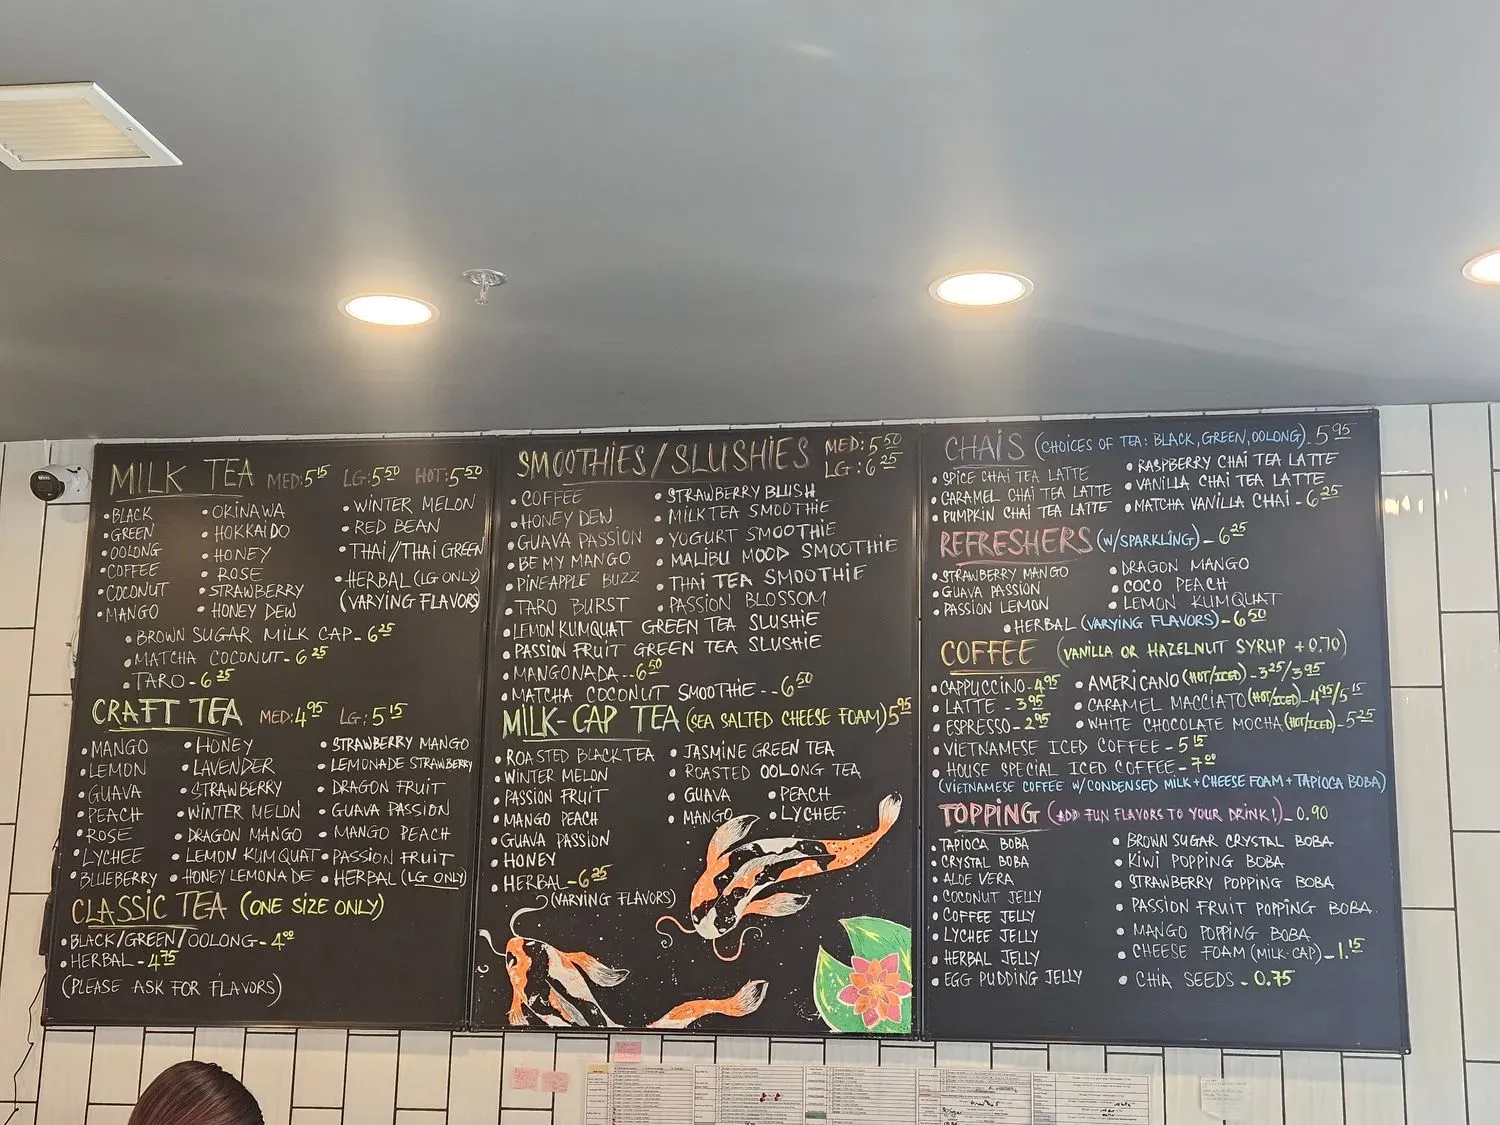 MILK TEA MED: 5.15 LG: 5.50 HOT: 5.50
• BLACK
• GREEN
• OOLONG
• COFFEE
• COCONUT
• MANGO
• OKINAWA
• HOKKAIDO
• HONEY
• ROSE
• STRAWBERRY
• HONEY DEW
• WINTER MELON
• RED BEAN
• THAI/THAI GREEN
• HERBAL (LG ONLY)
(VARYING FLAVORS)
• BROWN SUGAR MILK CAP - 6.25
• MATCHA COCONUT - 6.25
• TARO - 6.25
CRAFT TEA MED: 4.95 LG: 5.15
• MANGO
• LEMON
• GUAVA
• PEACH
• ROSE
• LYCHEE
• BLUEBERRY
• HONEY
• LAVENDER
• STRAWBERRY
• WINTER MELON
• DRAGON MANGO
• LEMON KUMQUAT
• HONEY LEMONADE
• STRAWBERRY MANGO
• LEMONADE STRAWBERRY
• DRAGON FRUIT
• GUAVA PASSION
• MANGO PEACH
• PASSION FRUIT
• HERBAL (LG ONLY)
CLASSIC TEA (ONE SIZE ONLY)
• BLACK/GREEN/OOLONG - 4.00
• HERBAL - 4.75
(PLEASE ASK FOR FLAVORS)
SMOOTHIES/SLUSHIES MED: 5.50
LG: 6.25
• COFFEE
• HONEY DEW
• GUAVA PASSION
• BE MY MANGO
• PINEAPPLE BUZZ
• TARO BURST
• STRAWBERRY BLUSH
• MILKTEA SMOOTHIE
• YOGURT SMOOTHIE
• MALIBU MOOD SMOOTHIE
• THAI TEA SMOOTHIE
• PASSION BLOSSOM
• LEMON KUMQUAT GREEN TEA SLUSHIE
• PASSION FRUIT GREEN TEA SLUSHIE
• MANGONADA -- 6.50
• MATCHA COCONUT SMOOTHIE -- 6.50
MILK-CAP TEA (SEA SALTED CHEESE FOAM) 5.95
• ROASTED BLACK TEA
• WINTER MELON
• PASSION FRUIT
• MANGO PEACH
• GUAVA PASSION
• HONEY
• HERBAL - 6.25
(VARYING FLAVORS)
• JASMINE GREEN TEA
• ROASTED OOLONG TEA
• GUAVA
• MANGO
• PEACH
• LYCHEE
CHAIS (CHOICES OF TEA: BLACK, GREEN, OOLONG) 5.95
• SPICE CHAI TEA LATTE
• CARAMEL CHAI TEA LATTE
• PUMPKIN CHAI TEA LATTE
• RASPBERRY CHAI TEA LATTE
• VANILLA CHAI TEA LATTE
• MATCHA VANILLA CHAI - 6.25
REFRESHERS (W/SPARKLING) - 6.25
• STRAWBERRY MANGO
• GUAVA PASSION
• PASSION LEMON
• DRAGON MANGO
• COCO PEACH
• LEMON KUMQUAT
• HERBAL (VARYING FLAVORS) - 6.50
COFFEE (VANILLA OR HAZELNUT SYRUP +0.70)
• CAPPUCCINO - 4.95
• LATTE - 3.95
• ESPRESSO - 2.95
• AMERICANO (HOT/ICED) - 3.25/3.95
• CARAMEL MACCIATO (HOT/ICED) - 4.95/5.15
• WHITE CHOCOLATE MOCHA (HOT/ICED) - 5.25
• VIETNAMESE ICED COFFEE - 5.15
• HOUSE SPECIAL ICED COFFEE - 7.00
(VIETNAMESE COFFEE W/CONDENSED MILK + CHEESE FOAM + TAPIOCA BOBA)
TOPPING (ADD FUN FLAVORS TO YOUR DRINK!) - 0.90
• TAPIOCA BOBA
• CRYSTAL BOBA
• ALOE VERA
• COCONUT JELLY
• COFFEE JELLY
• LYCHEE JELLY
• HERBAL JELLY
• EGG PUDDING JELLY
• BROWN SUGAR CRYSTAL BOBA
• KIWI POPPING BOBA
• STRAWBERRY POPPING BOBA
• PASSION FRUIT POPPING BOBA
• MANGO POPPING BOBA
• CHEESE FOAM (MILK-CAP) - 1.15
• CHIA SEEDS - 0.75